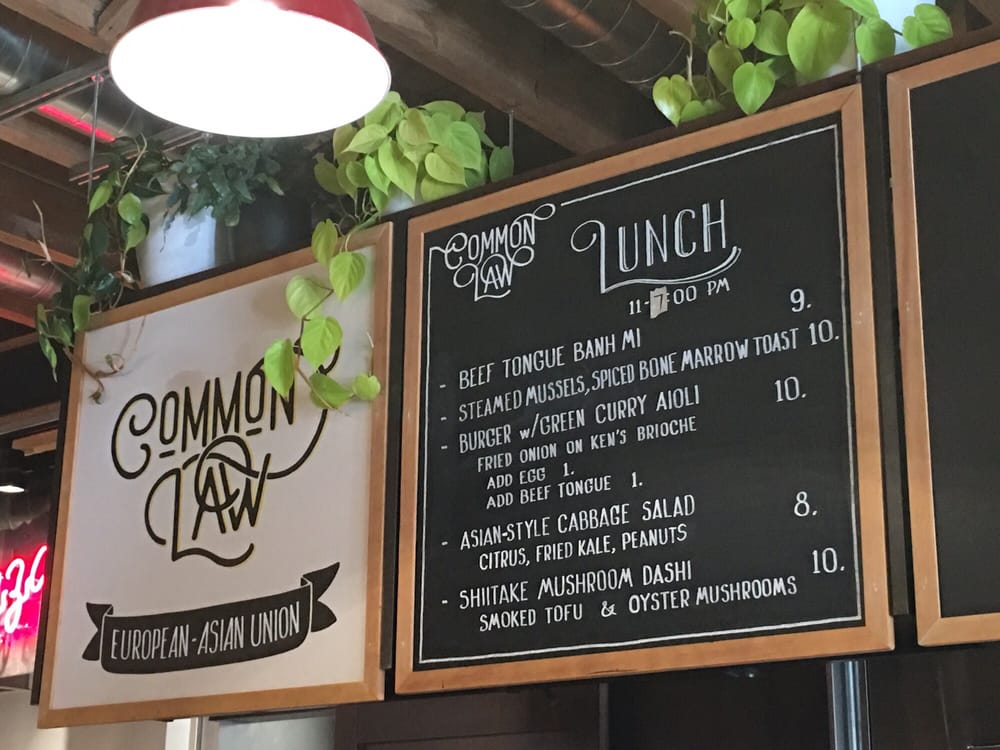 COMMON
LAW
EUROPEAN-ASIAN UNION
COMMON
LAW
LUNCH
11-7:00 PM
- BEEF TONGUE BANH MI 9.
- STEAMED MUSSELS, SPICED BONE MARROW TOAST 10.
- BURGER w/GREEN CURRY AIOLI 10.
FRIED ONION ON KEN'S BRIOCHE
ADD EGG 1.
ADD BEEF TONGUE 1.
- ASIAN-STYLE CABBAGE SALAD 8.
CITRUS, FRIED KALE, PEANUTS
- SHIITAKE MUSHROOM DASHI 10.
SMOKED TOFU & OYSTER MUSHROOMS